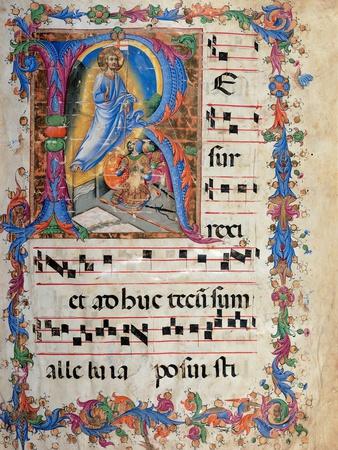 R E
sur
rexi
et adhuc tecũ sum
alleluia posuisti